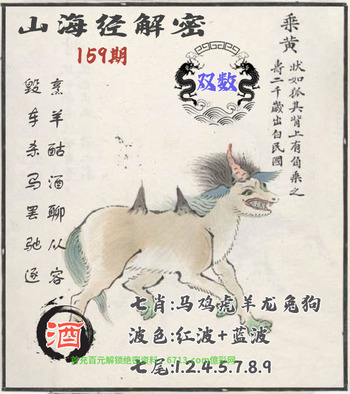 山海经解密
159期
双数
乘黄
状如狐其背上有角乘之
寿二千歲出白民國
烹羊酤酒聊从容
毁车杀马罢驰逐
酒
七肖:马鸡虎羊龙兔狗
波色:红波+蓝波
七尾:1.2.4.5.7.8.9